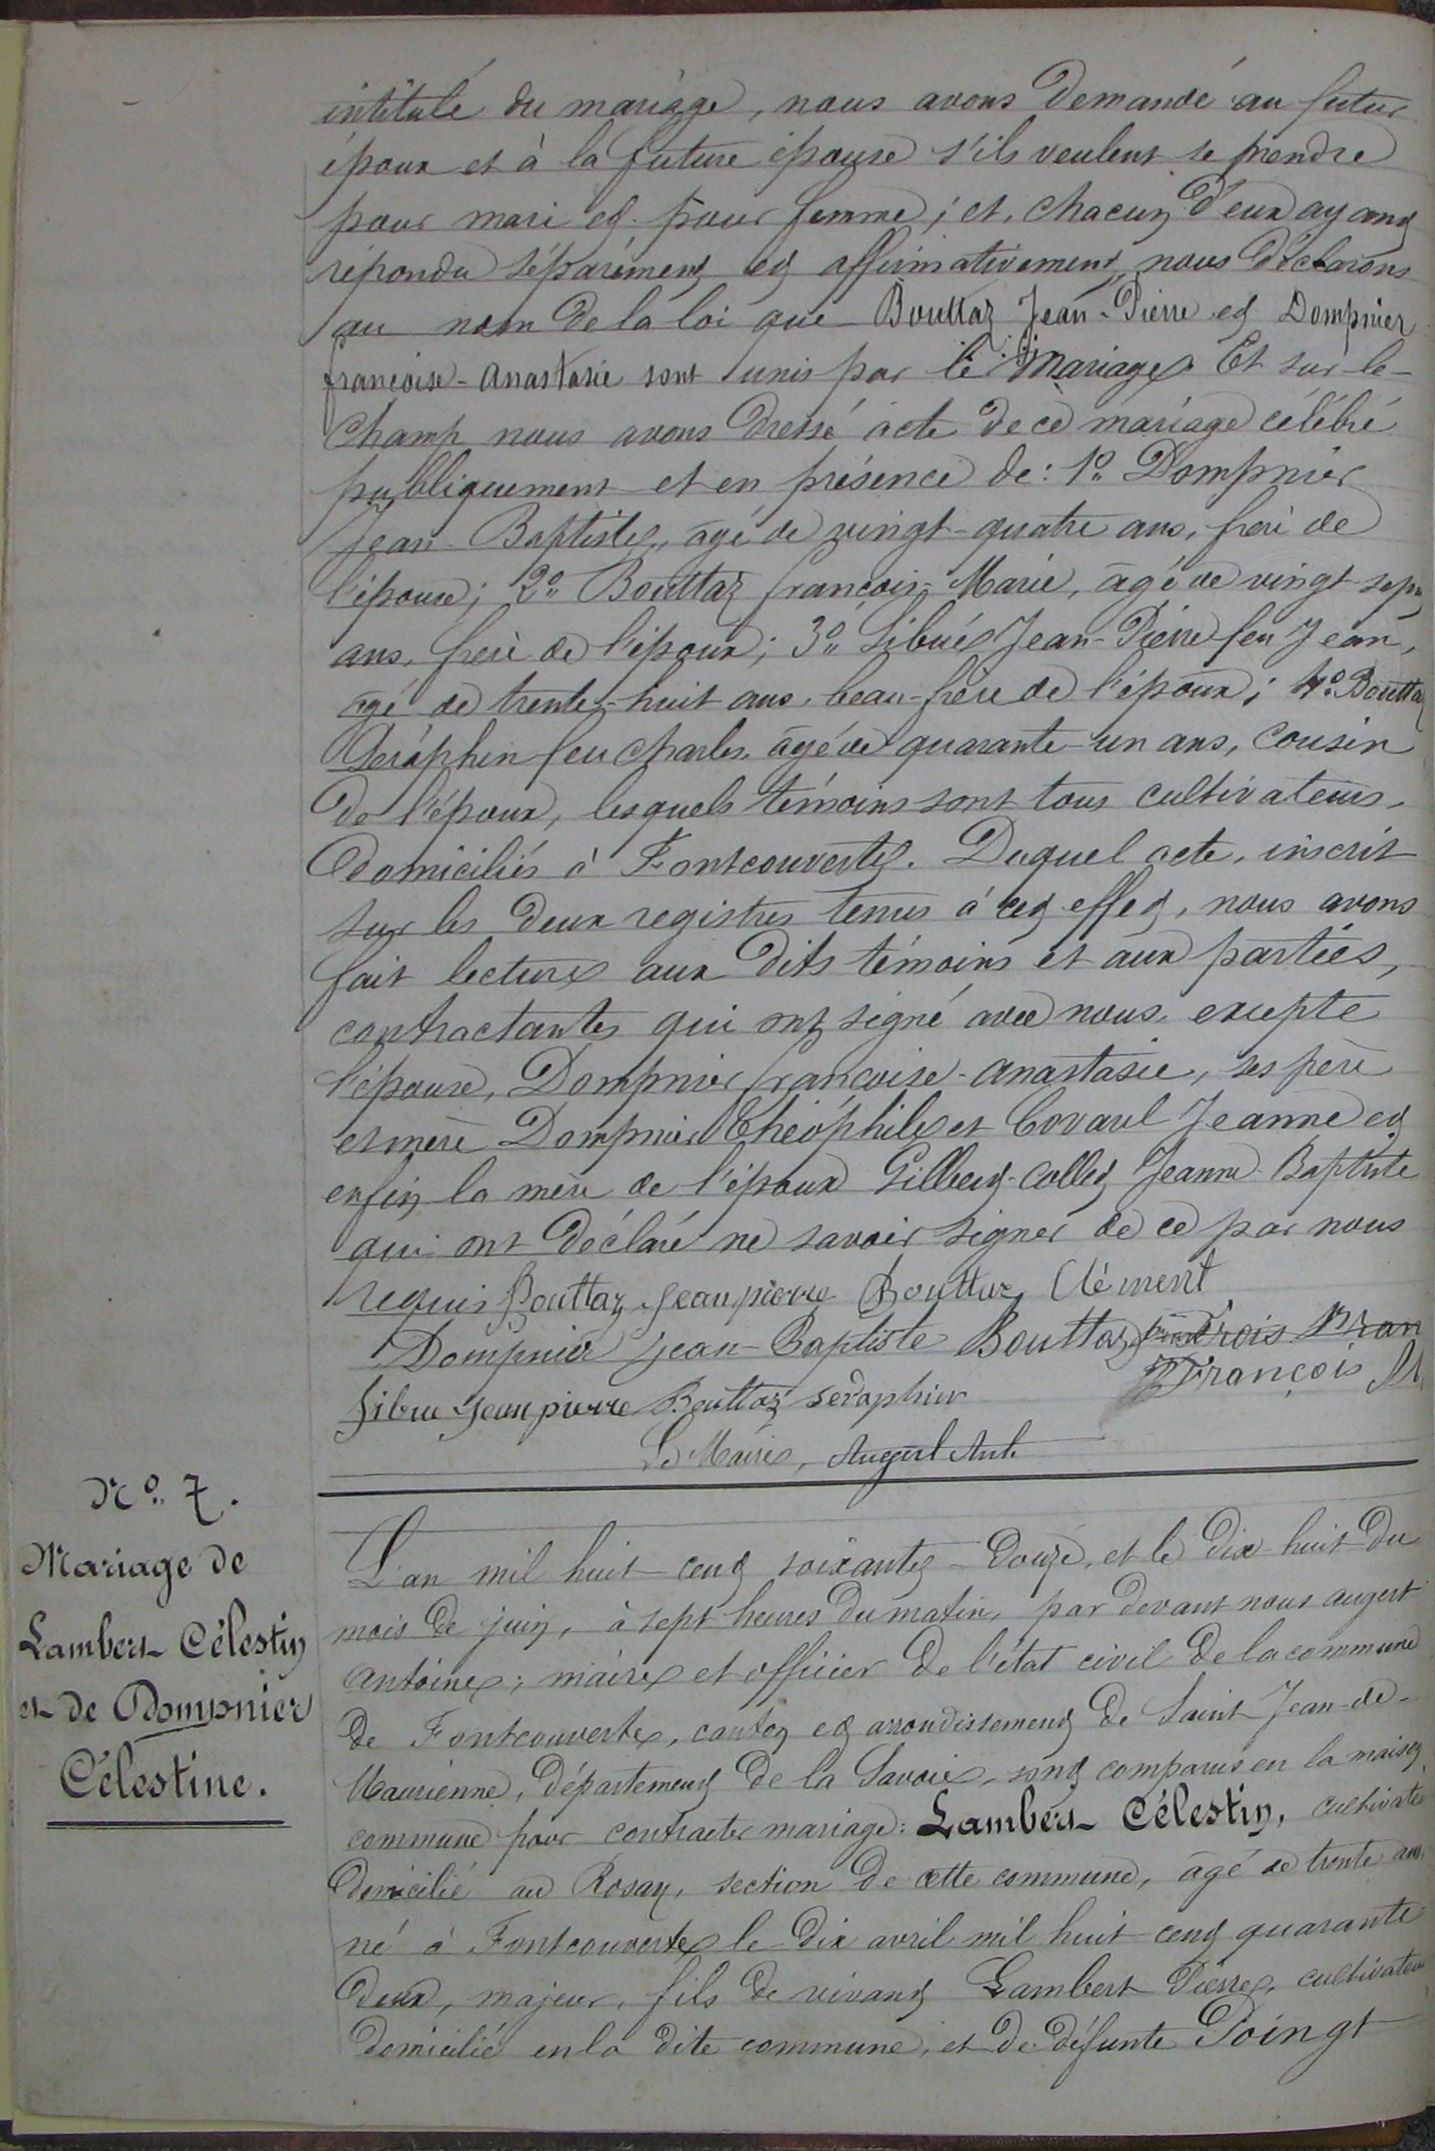 intitulé du mariage, nous avons demandé au futur
époux et à la future épouse s'ils veulent se prendre
pour mari et pour femme; et, chacun d'eux ayant
répondu séparément et affirmativement, nous déclarons
au nom de la loi que Bouttaz Jean-Pierre et Dompnier
françoise-anastasie sont unis par le mariage. Et sur-le-
champ nous avons dressé acte de ce mariage célébré
publiquement et en présence de: 1º Dompnier
Jean-Baptiste, âgé de vingt-quatre ans, frère de
l'épouse; 2º Bouttaz françois-Marie, âgé de vingt-sept
ans, frère de l'époux; 3º Sibué Jean-Pierre feu Jean,
âgé de trente-huit ans, beau-frère de l'époux; 4º Bouttaz
Séraphin feu Charles, âgé de quarante-un ans, cousin
de l'époux, lesquels témoins sont tous cultivateurs,
domiciliés à Fontcouverte. Duquel acte, inscrit
sur les deux registres tenus à cet effet, nous avons
fait lecture aux dits témoins et aux parties,
contractantes qui ont signé avec nous, excepté
l'épouse, Dompnier françoise-anastasie, ses père
et mère Dompnier Théophile et Covarel Jeanne et
enfin la mère de l'époux Gilbert-Collet Jeanne-Baptiste
qui ont déclaré ne savoir signer de ce par nous
requis Bouttaz Jeanpierre Bouttaz Clément
Dompnier Jean-Baptiste Bouttaz
François M
Sibue Jeanpierre Bouttaz seraphin
Le Maire, Augert Ant.
Nº 7.
Mariage de
Lambert Célestin
et de Dompnier
Célestine.
L'an mil huit cent soixante-douze, et le dix-huit du
mois de juin, à sept heures du matin, par devant nous augert
antoine, maire et officier de l'état civil de la commune
de Fontcouverte, canton et arrondissement de Saint-Jean-de-
Maurienne, département de la Savoie, sont comparus en la maison
commune pour contracter mariage: Lambert Célestin, cultivateur
domicilié au Rosay, section de cette commune, âgé de trente ans
né à Fontcouverte le dix avril mil huit cent quarante
deux, majeur, fils de vivant Lambert Pierre, cultivateur
domicilié en la dite commune, et de défunte Poingt